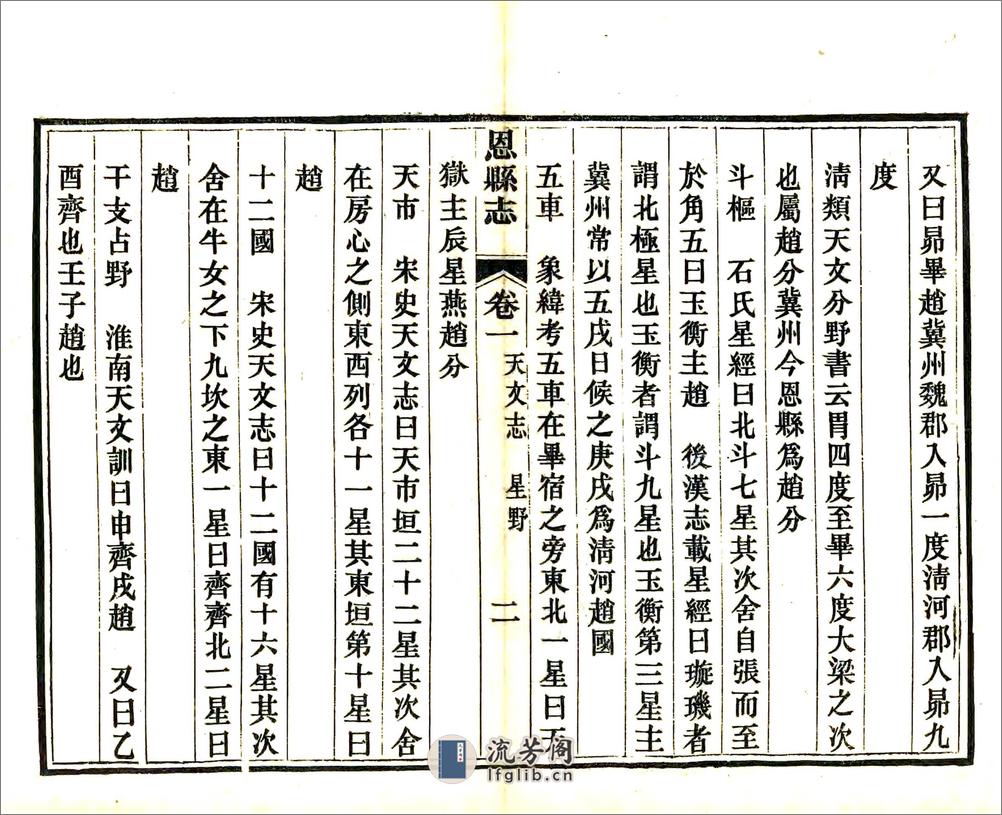 又曰昴畢趙冀州魏郡入昴一度淸河郡入昴九
度
淸類天文分野書云胃四度至畢六度大梁之次
也屬趙分冀州今恩縣爲趙分
斗樞　石氏星經曰北斗七星其次舍自張而至
於角五曰玉衡主趙　後漢志載星經曰璇璣者
謂北極星也玉衡者謂斗九星也玉衡第三星主
冀州常以五戌日候之庚戌爲淸河趙國
五車　象緯考五車在畢宿之旁東北一星曰天
恩縣志　卷一　天文志　星野　二
獄主辰星燕趙分
天市　宋史天文志曰天市垣二十二星其次舍
在房心之側東西列各十一星其東垣第十星曰
趙
十二國　宋史天文志曰十二國有十六星其次
舍在牛女之下九坎之東一星曰齊齊北二星曰
趙
干支占野　淮南天文訓曰申齊戌趙　又曰乙
酉齊也壬子趙也
流芳阁
lfglib.cn